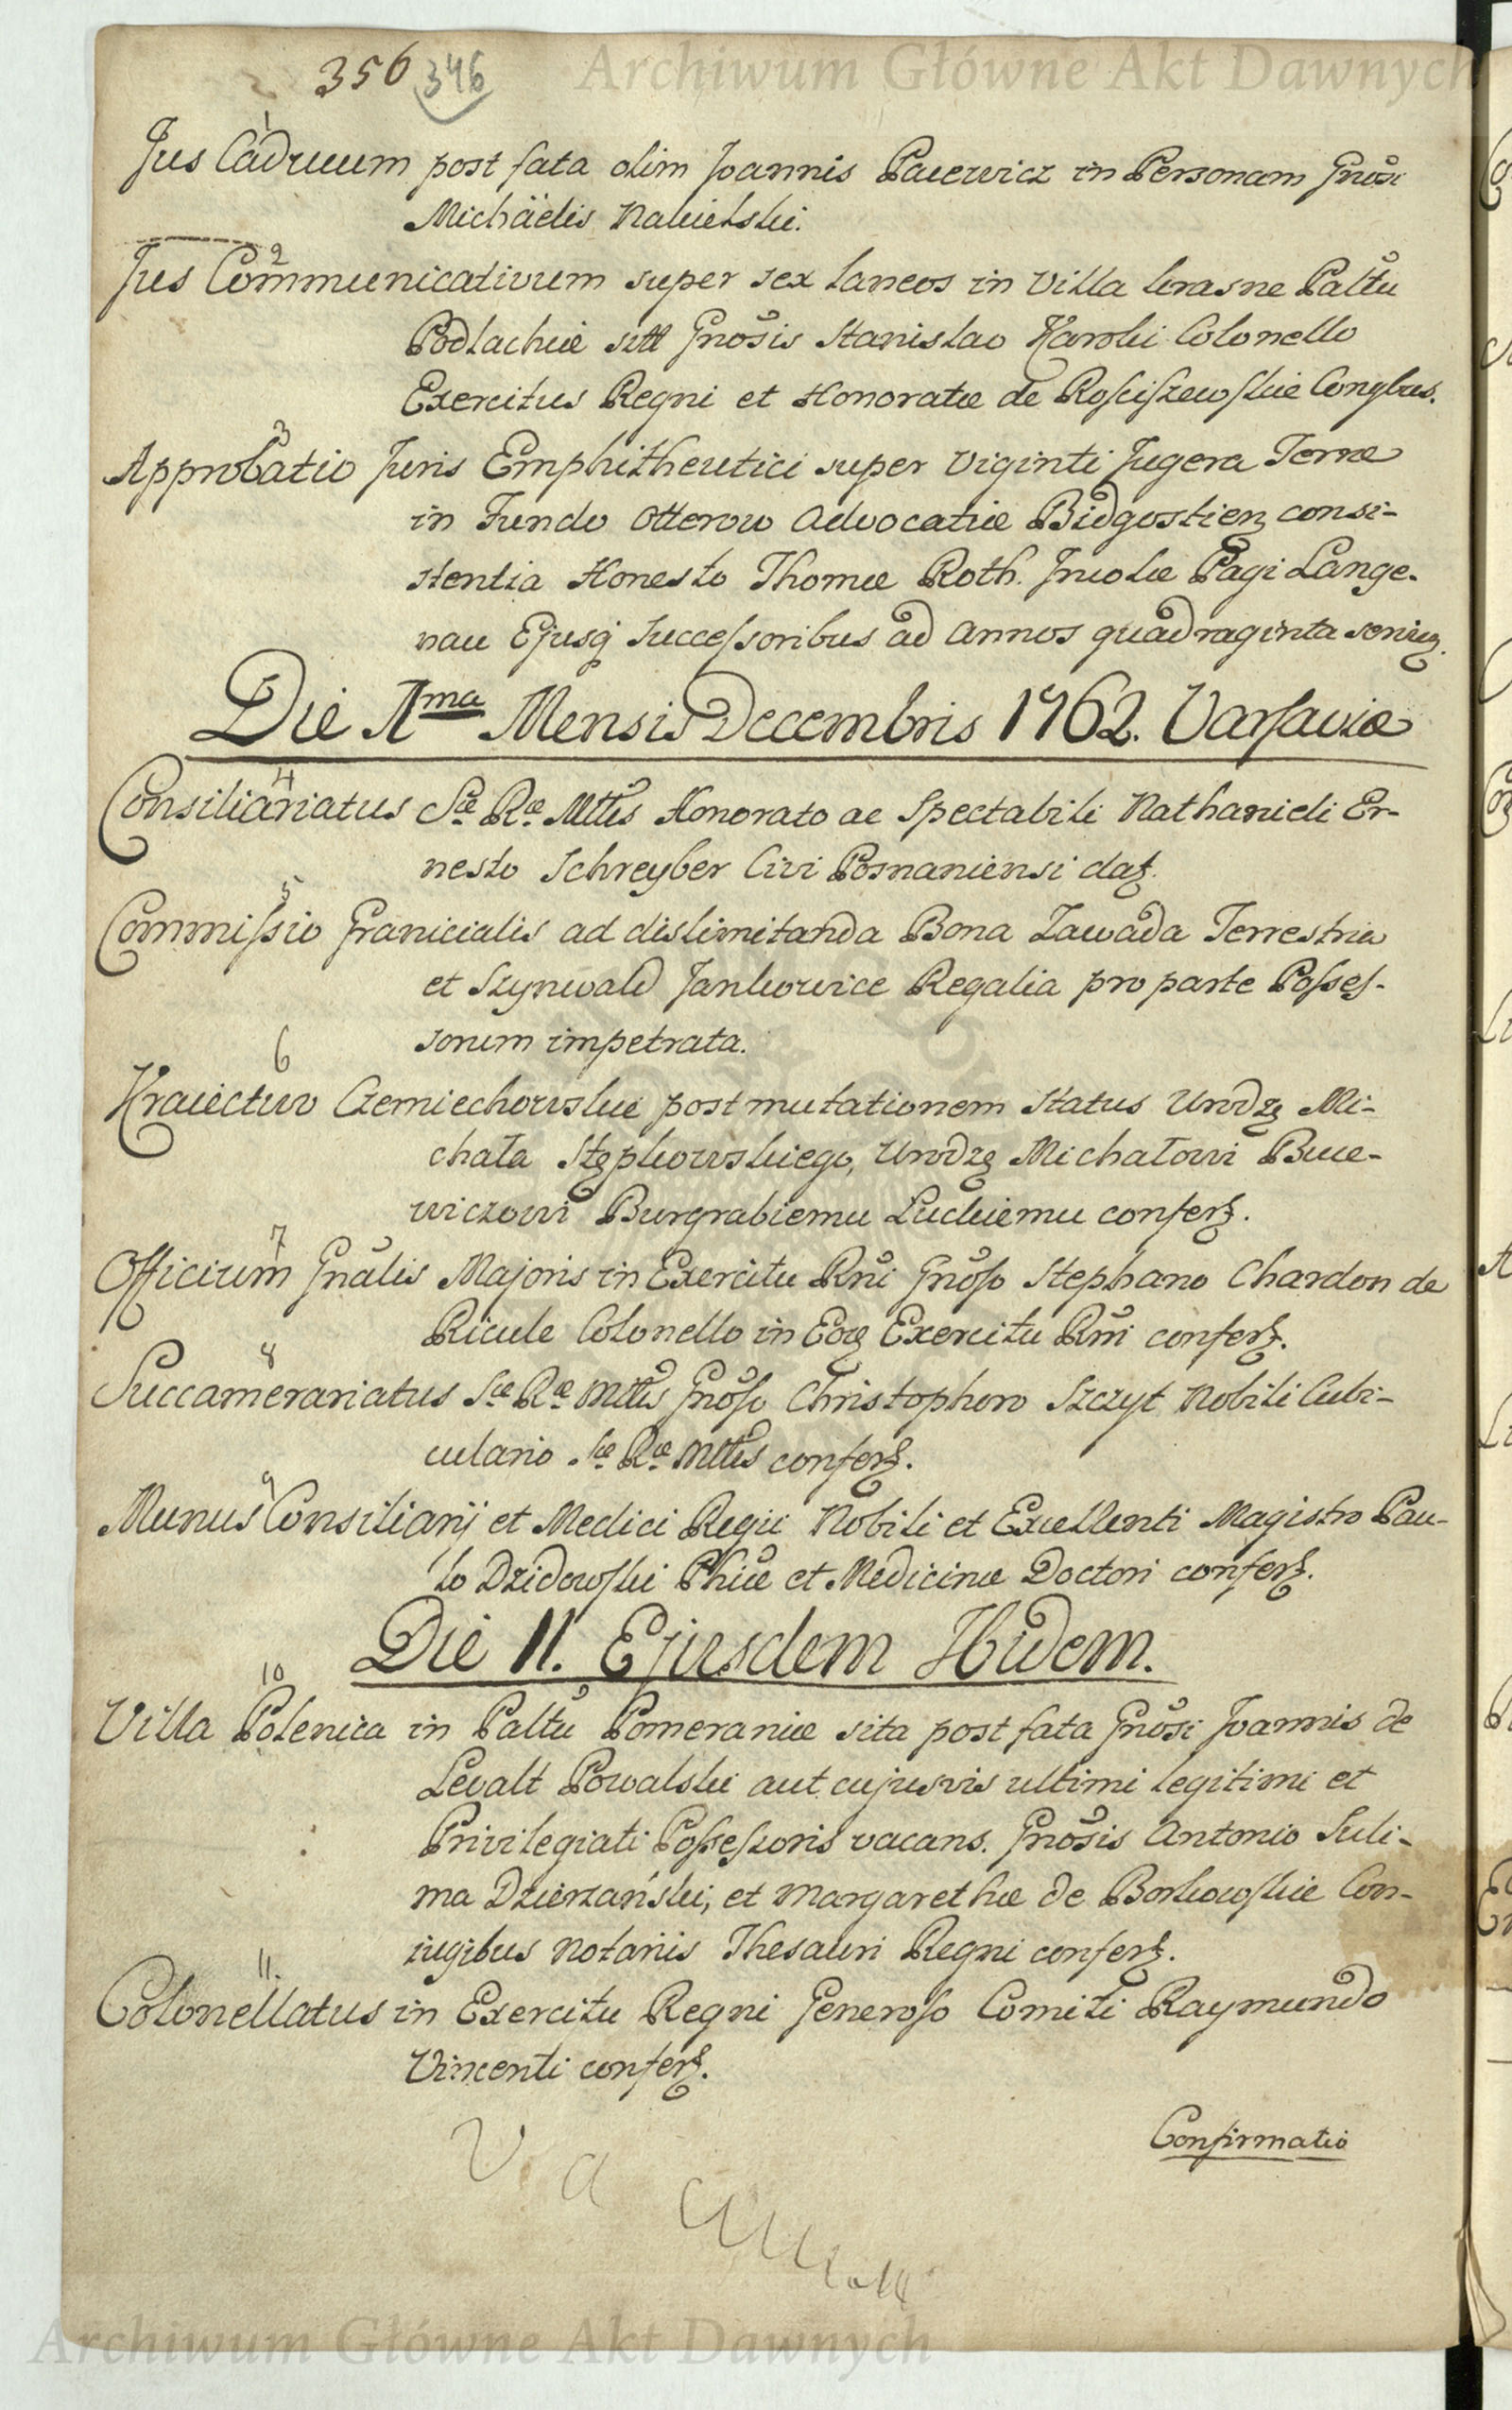 Archiwum Główne Akt Dawnych
356 346
1
Jus Caducum post fata olim Joannis Pacewicz in Personam Gnosi
Michäelis Nakielski.
2
Jus Communicativum super sex laneos in Villa krasne Paltu
Podlachiæ sitt Gnosis Stanislao Karski Colonello
Exercitus Regni et Honoratæ de Rościszewskie Congbus.
3
Approbatio Juris Emphitheutici super Viginti Jugera Terræ
in Fundo Otterow Advocatiæ Bidgostien consi-
stentia Honesto Thomæ Roth. Incolæ Pagi Lange-
nau Ejusq Successoribus ad Annos quadraginta
Die 1ma Mensis Decembris 1762. Varsaviæ
4
Consiliariatus Sæ Ræ Mttis Honorato ac Spectabili Nathanieli Er-
nesto Schreyber Civi Posnaniensi dat.
5
Commissio Granicialis ad dislimitanda Bona Zawada Terrestria
et Szynwald Jankowice Regalia pro parte Posses-
sorum impetrata.
6
Kraiectwo Czerniechowskie post mutationem Status Urodze Mi-
chała Stępkowskiego, Urodze Michałowi Buce-
wiczowi Burgrabiemu Łuckiemu confert.
7
Officium Gnalis Majoris in Exercitu Rni Gnoso Stephano Chardon de
Ricule Colonello in Eoq Exercitu Rni confert.
8
Succamerariatus Sæ Ræ Mttis Gnoso Christophoro Szczyt Nobili Cubi-
culario Sæ Ræ Mttis confert.
9
Munus Consiliarij et Medici Regii Nobili et Excellenti Magistro Pau-
lo Dzidowski Phiæ et Medicinæ Doctori confert.
Die 11. Ejusdem Ibidem.
10
Villa Polenica in Paltu Pomeraniæ sita post fata Gnosi Joannis de
Levalt Powalski aut cujusvis ultimi legitimi et
Privilegiati Possessoris vacans. Gnosis Antonio Suli-
ma Dzierzański, et Margarethæ de Borkowskie Con-
iugibus Notariis Thesauri Regni confert.
11.
Colonellatus in Exercitu Regni Generoso Comiti Raymundo
Vincenti confert.
Confirmatio
Archiwum Główne Akt Dawnych